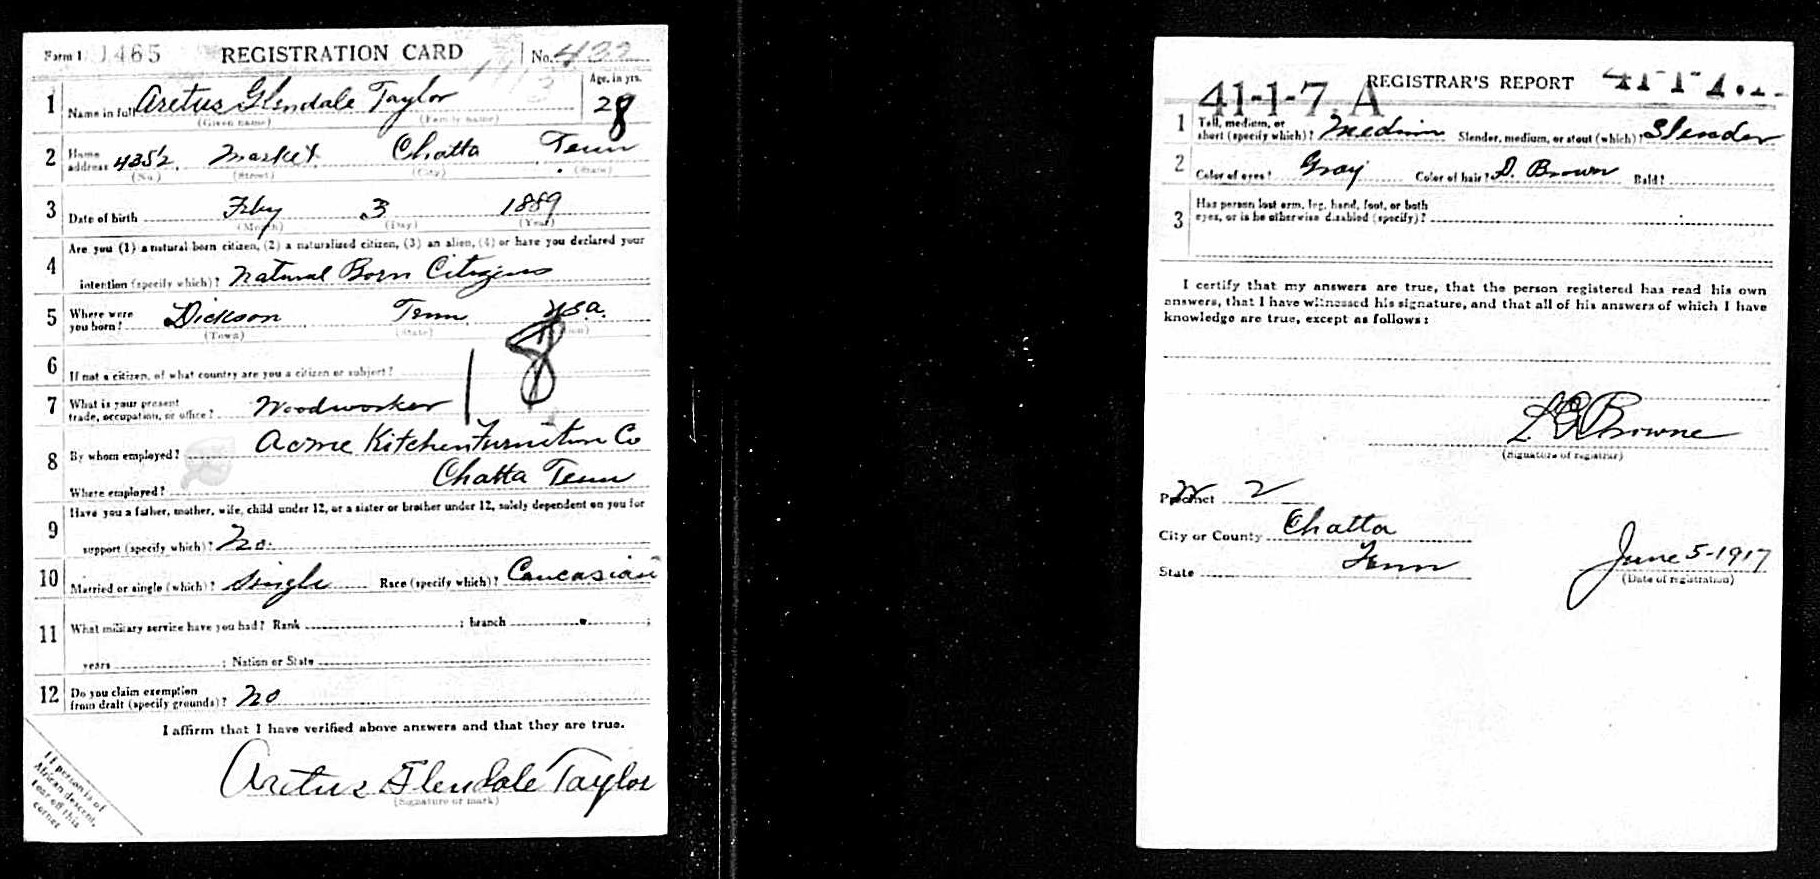 Form 1 1465 REGISTRATION CARD No. 432
Age, in yrs.
1 Name in full Aretus Glendale Taylor 28
(Given name) (Family name)
2 Home address 435½ Market Chatta Tenn
(No.) (Street) (City) (State)
3 Date of birth Feby 3 1889
(Month) (Day) (Year)
4 Are you (1) a natural born citizen, (2) a naturalized citizen, (3) an alien, (4) or have you declared your
intention (specify which)? Natural Born Citizens
5 Where were you born? Dickson Tenn USA.
(Town) (State) (Nation)
18
6 If not a citizen, of what country are you a citizen or subject?
7 What is your present
trade, occupation, or office? Woodworker
8 By whom employed? Acme Kitchen Furniture Co
Where employed? Chatta Tenn
9 Have you a father, mother, wife, child under 12, or a sister or brother under 12, solely dependent on you for
support (specify which)? No.
10 Married or single (which)? Single Race (specify which)? Caucasian
11 What military service have you had? Rank ; branch ;
years ; Nation or State
12 Do you claim exemption
from draft (specify grounds)? No
I affirm that I have verified above answers and that they are true.
Aretus Glendale Taylor
(Signature or mark)
If person is of
African descent,
tear off this
corner
41-1-7. A REGISTRAR'S REPORT
1 Tall, medium, or
short (specify which)? Medium Slender, medium, or stout (which)? Slender
2 Color of eyes? Gray Color of hair? D. Brown Bald?
3 Has person lost arm, leg, hand, foot, or both
eyes, or is he otherwise disabled (specify)?
I certify that my answers are true, that the person registered has read his own
answers, that I have witnessed his signature, and that all of his answers of which I have
knowledge are true, except as follows:
Browne
(Signature of registrar)
Precinct 2
City or County Chatta
State Tenn
June 5-1917
(Date of registration)